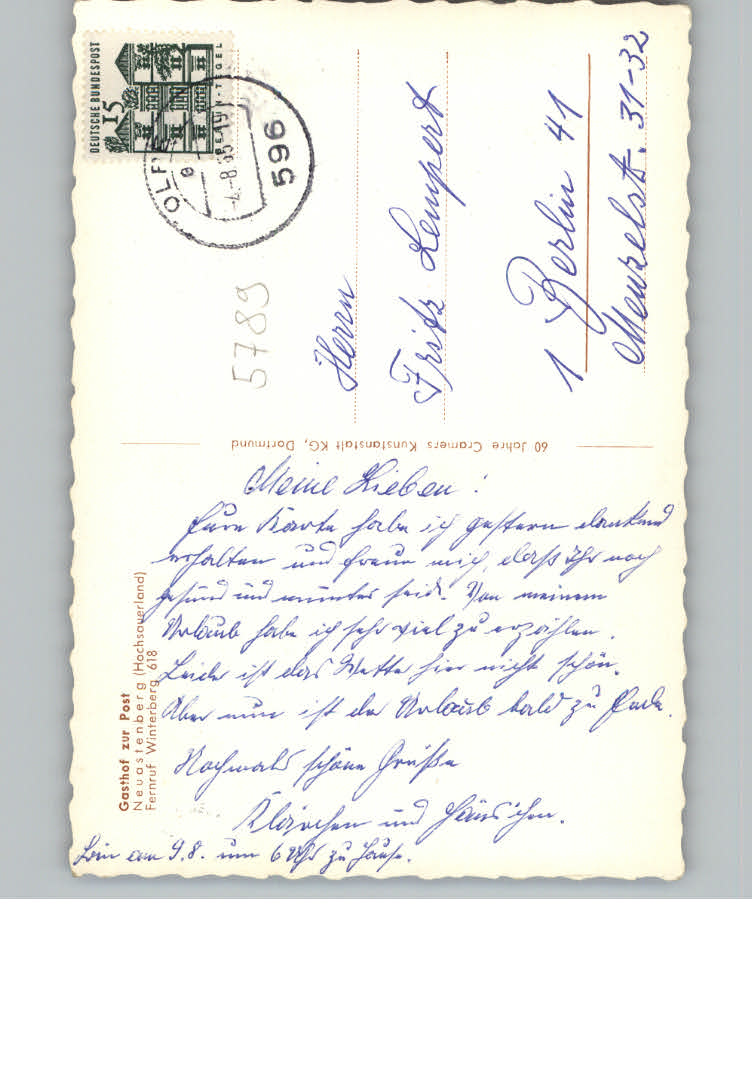 DEUTSCHE BUNDESPOST
15
BERLIN-TEGEL
OLPE
e
-4.-8.65
596
5789
Herrn
Fritz Lempert
1 Berlin 41
Menzelstr. 31-32
60 Jahre Cramers Kunstanstalt KG, Dortmund
Gasthof zur Post
Neuastenberg (Hochsauerland)
Fernruf Winterberg 618
Meine Lieben!
Eure Karte habe ich gestern dankend
erhalten und freue mich, daß Ihr noch
gesund und munter seid. Von meinem
Urlaub habe ich sehr viel zu erzählen.
Leider ist das Wetter hier nicht schön.
Aber nun ist der Urlaub bald zu Ende.
Nochmals schöne Grüße
Klärchen und
am 9.8. um 6 Uhr zu Hause.